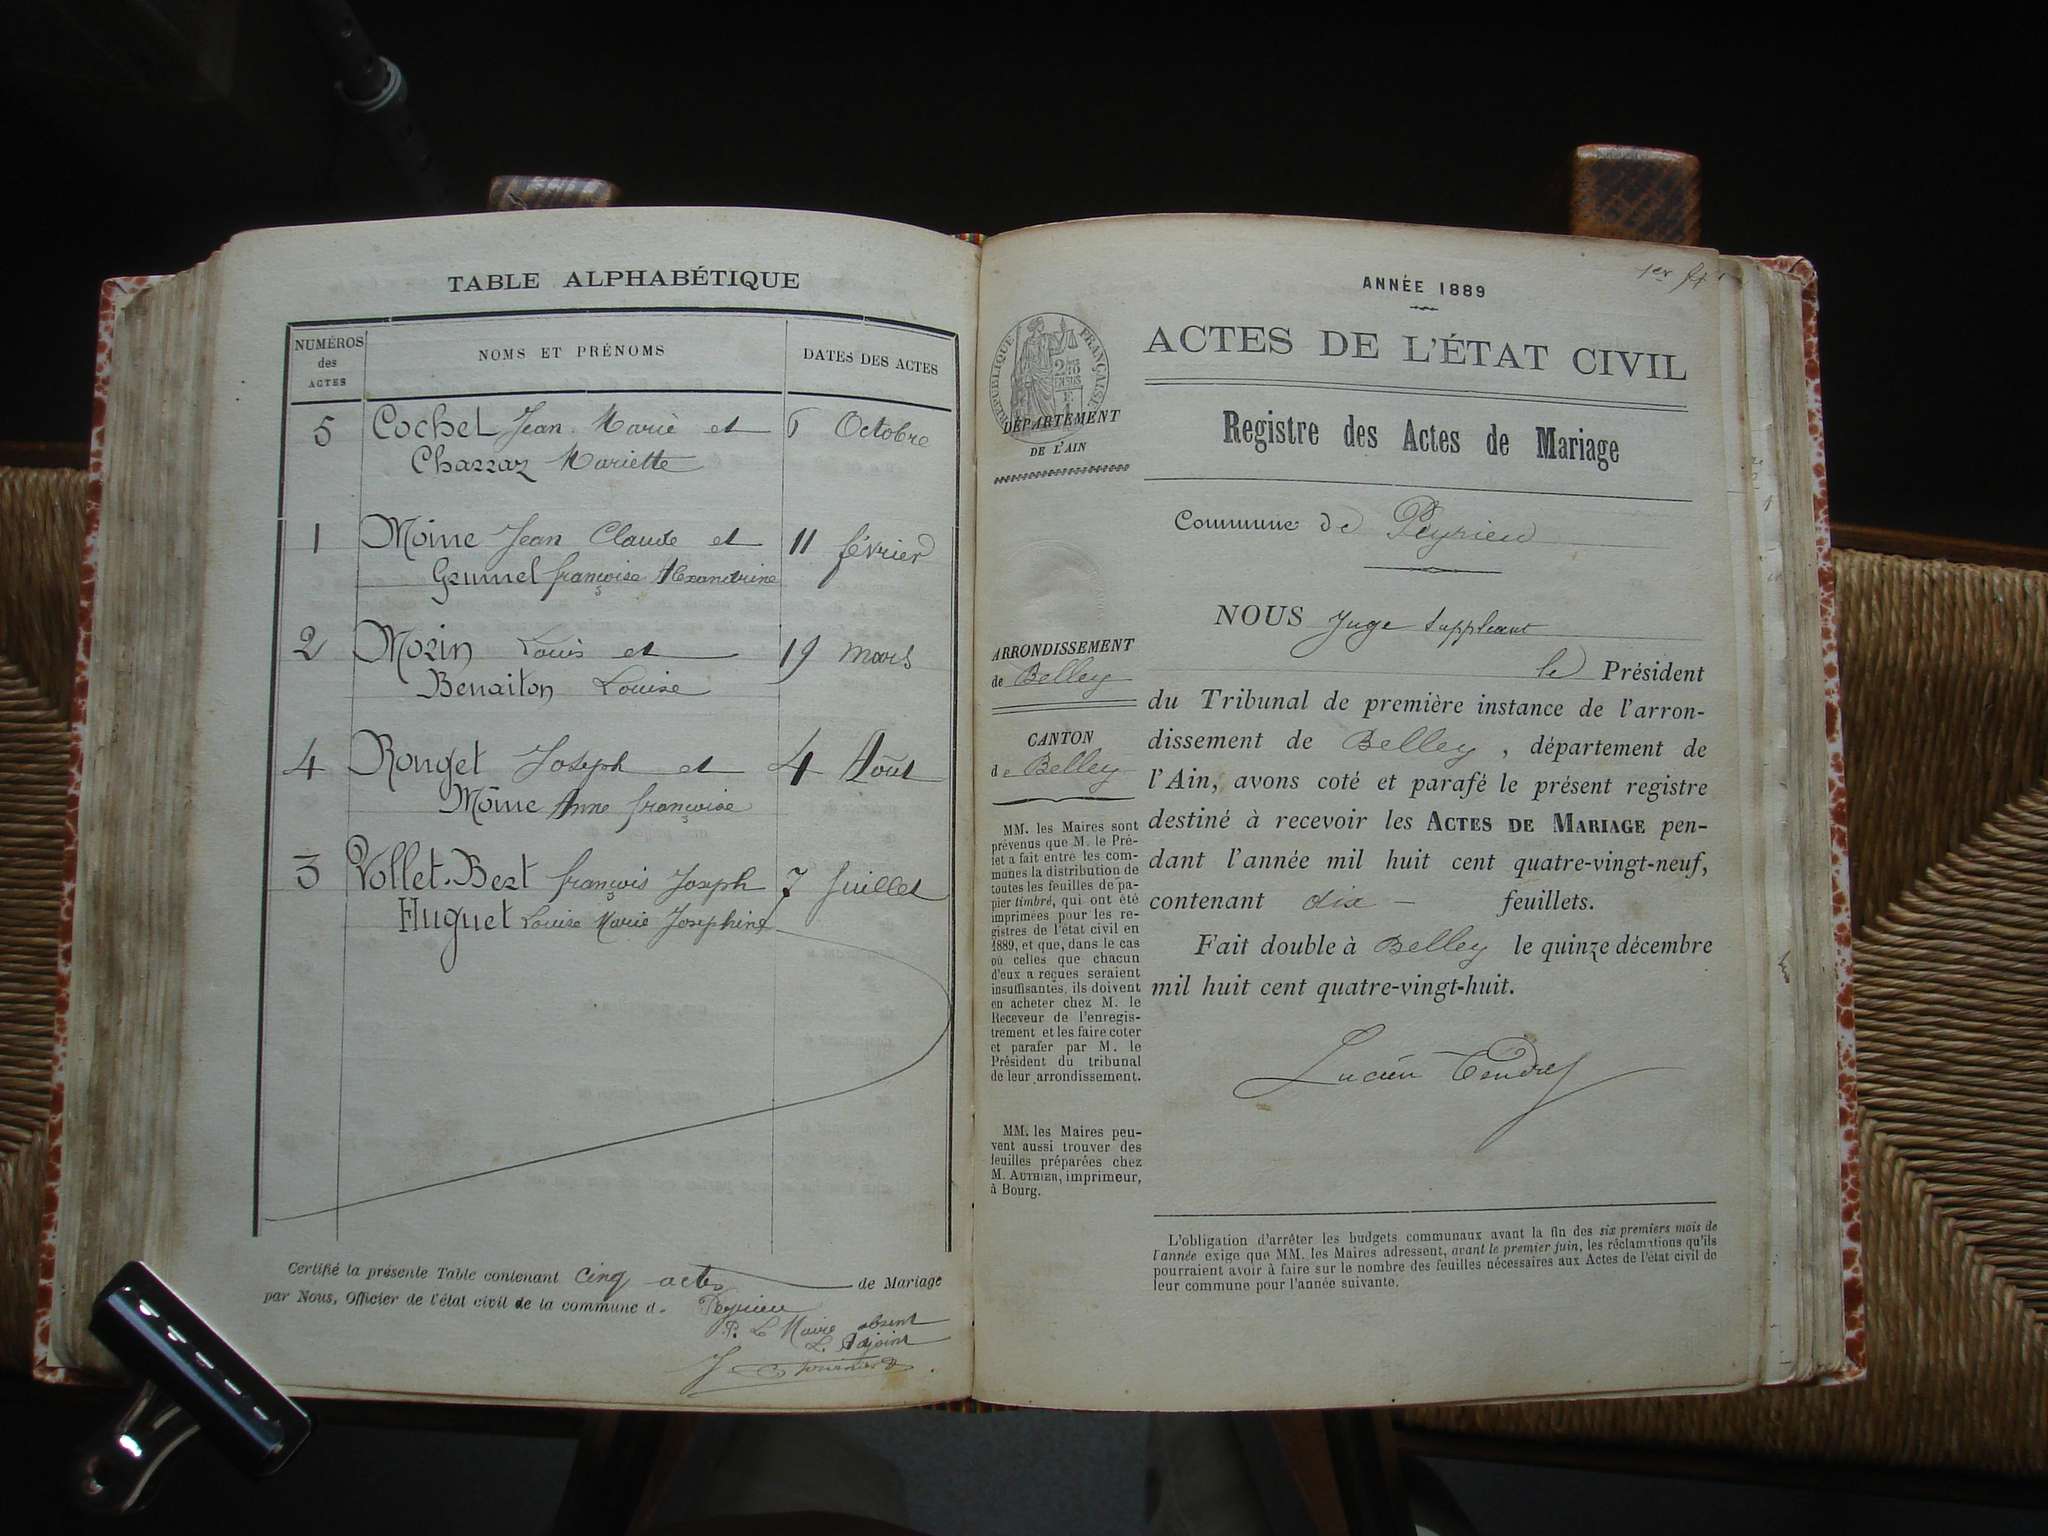 TABLE ALPHABÉTIQUE
NUMÉROS des ACTES
NOMS ET PRÉNOMS
DATES DES ACTES
5 Cochet Jean Marie et 6 Octobre
Charraz Mariette
1 Moine Jean Claude et 11 février
françoise Alexandrine
2 Morin Louis et 19 mars
Benaiton Louise
4 Rouget Joseph et 4 Août
Moine Anne françoise
3 Vollet-Bert françois Joseph 7 Juillet
Huguet Louise Marie Josephine
Certifié la présente Table contenant Cinq actes de Mariage
par Nous, Officier de l'état civil de la commune d. Peyrieu
P. Le Maire absent
L'Adjoint
1er ft
ANNÉE 1889
ACTES DE L'ÉTAT CIVIL
Registre des Actes de Mariage
Commune de Peyrieu
NOUS Juge Suppléant
le Président
du Tribunal de première instance de l'arron-
dissement de Belley, département de
l'Ain, avons coté et parafé le présent registre
destiné à recevoir les ACTES DE MARIAGE pen-
dant l'année mil huit cent quatre-vingt-neuf,
contenant dix — feuillets.
Fait double à Belley le quinze décembre
mil huit cent quatre-vingt-huit.
Lucien Tendret
RÉPUBLIQUE FRANÇAISE
DÉPARTEMENT
DE L'AIN
ARRONDISSEMENT
de Belley
CANTON
de Belley
MM. les Maires sont
prévenus que M. le Pré-
fet a fait entre les com-
munes la distribution de
toutes les feuilles de pa-
pier timbré, qui ont été
imprimées pour les re-
gistres de l'état civil en
1889, et que, dans le cas
où celles que chacun
d'eux a reçues seraient
insuffisantes, ils doivent
en acheter chez M. le
Receveur de l'enregis-
trement et les faire coter
et parafer par M. le
Président du tribunal
de leur arrondissement.
MM. les Maires peu-
vent aussi trouver des
feuilles préparées chez
M. AUTHIER, imprimeur,
à Bourg.
L'obligation d'arrêter les budgets communaux avant la fin des six premiers mois de
l'année exige que MM. les Maires adressent, avant le premier juin, les réclamations qu'ils
pourraient avoir à faire sur le nombre des feuilles nécessaires aux Actes de l'état civil de
leur commune pour l'année suivante.